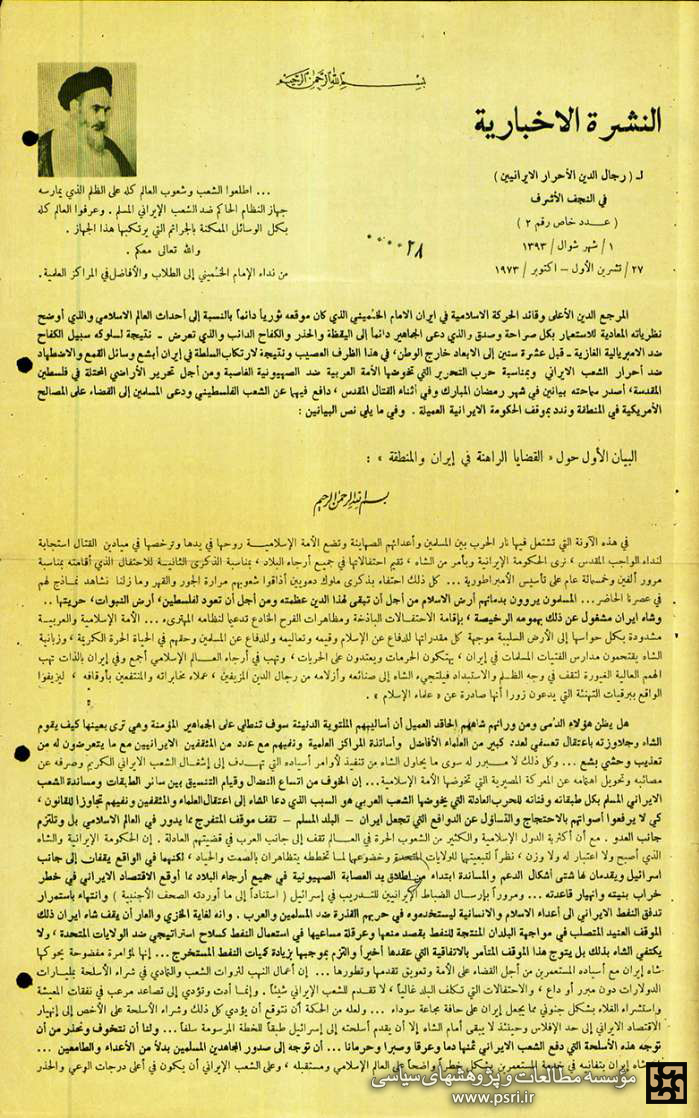 بسم الله الرحمن الرحيم
النشرة الاخبارية
لـ ( رجال الدين الأحرار الايرانيين )
في النجف الأشرف
( عدد خاص رقم ٢ )
١ / شهر شوال / ١٣٩٣
٢٧ / تشرين الأول – اكتوبر / ١٩٧٣
... اطلعوا الشعب وشعوب العالم كله على الظلم الذي يمارسه
جهاز النظام الحاكم ضد الشعب الإيراني المسلم . وعرفوا العالم كله
بكل الوسائل الممكنة بالجرائم التي يرتكبها هذا الجهاز .
والله تعالى معكم .
من نداء الإمام الخميني إلى الطلاب والأفاضل في المراكز العلمية .
٢٨
المرجع الدين الأعلى وقائد الحركة الاسلامية في ايران الامام الخميني الذي كان موقعه ثورياً دائماً بالنسبة إلى أحداث العالم الاسلامي والذي أوضح
نظرياته المعادية للاستعمار بكل صراحة وصدق والذي دعى الجماهير دائماً إلى اليقظة والحذر والكفاح الدائب والذي تعرض – نتيجة لسلوكه سبيل الكفاح
ضد الامبريالية الغازية – قبل عشرة سنين إلى الابعاد خارج الوطن ، في هذا الظرف العصيب ونتيجة لارتكاب السلطة في إيران أبشع وسائل القمع والاضطهاد
ضد أحرار الشعب الايراني وبمناسبة حرب التحرير التي تخوضها الأمة العربية ضد الصهيونية الغاصبة ومن أجل تحرير الأراضي المحتلة في فلسطين
المقدسة ، أصدر سماحته بيانين في شهر رمضان المبارك وفي أثناء القتال المقدس ، دافع فيهما عن الشعب الفلسطيني ودعى المسلمين إلى القضاء على المصالح
الأمريكية في المنطقة وندد بموقف الحكومة الايرانية العميلة . وفي ما يلي نص البيانين :
البيان الأول حول « القضايا الراهنة في إيران والمنطقة » :
بسم الله الرحمن الرحيم
في هذه الآونة التي تشتعل فيها نار الحرب بين المسلمين وأعدائهم الصهاينة وتضع الأمة الإسلامية روحها في يدها وترخصها في ميادين القتال استجابة
لنداء الواجب المقدس ، نرى الحكومة الإيرانية وبأمر من الشاه ، تقيم احتفالاتها في جميع أرجاء البلاد ، بمناسبة الذكرى الثانية للاحتفال الذي أقامته بمناسبة
مرور ألفين وخمسمائة عام على تأسيس الأمبراطورية ... كل ذلك احتفاء بذكرى ملوك دمويين أذاقوا شعوبهم مرارة الجور والقهر وما زلنا نشاهد نماذج لهم
في عصرنا الحاضر ... المسلمون يروون بدمائهم أرض الاسلام من أجل أن تبقى لهذا الدين عظمته ومن أجل أن تعود لفلسطين ، أرض النبوات ، حريتها ..
وشاه ايران مشغول عن ذلك بهمومه الرخيصة ، بإقامة الاحتفالات الباذخة ومظاهرات الفرح الخادع تدعيماً لنظامه المهترىء ... الأمة الإسلامية والعربية
مشدودة بكل حواسها إلى الأرض السليبة موجهة كل مقدراتها للدفاع عن الإسلام وقيمه وتعاليمه وللدفاع عن المسلمين وحقهم في الحياة الحرة الكريمة ، وزبانية
الشاه يقتحمون مدارس الفتيات المسلمات في إيران ، يهتكون الحرمات ويعتدون على الحريات ، وتهب في أرجاء العالم الإسلامي أجمع وفي إيران بالذات تهب
الهمم العالية الغيورة لتقف في وجه الظلم والاستبداد فيلتجيء الشاه إلى صنائعه وأزلامه من رجال الدين المزيفين ، عملاء مخابراته والمنتفعين بأوقافه ، ليزيفوا
الواقع ببرقيات التهنئة التي يدعون زوراً أنها صادرة عن « علماء الإسلام » .
هل يظن هؤلاء الدمى ومن ورائهم شاههم الحاقد العميل أن أساليبهم الملتوية الدنيئة سوف تنطلي على الجماهير المؤمنة وهي ترى بعينها كيف يقوم
الشاه وجلاوزته باعتقال تعسفي لعدد كبير من العلماء الأفاضل وأساتذة المراكز العلمية ونفيهم مع عدد من المثقفين الايرانيين مع ما يتعرضون له من
تعذيب وحشي بشع ... وكل ذلك لا مبرر له سوى ما يحاول الشاه من تنفيذ لأوامر أسياده التي تهدف إلى إشغال الشعب الايراني الكريم وصرفه عن
مصائبه وتحويل اهتمامه عن المعركة المصيرية التي تخوضها الأمة الإسلامية... إن الخوف من اتساع النضال وقيام التنسيق بين سائر الطبقات ومساندة الشعب
الايراني المسلم بكل طبقاته وفئاته للحرب العادلة التي يخوضها الشعب العربي هو السبب الذي دعا الشاه إلى اعتقال العلماء والمثقفين ونفيهم تجاوزا للقانون ،
كي لا يرفعوا أصواتهم بالاحتجاج والتساؤل عن الدوافع التي تجعل ايران – البلد المسلم – تقف موقف المتفرج مما يدور في العالم الاسلامي بل وتلتزم
جانب العدو . مع أن أكثرية الدول الإسلامية والكثير من الشعوب الحرة في العالم تقف إلى جانب العرب في قضيتهم العادلة . إن الحكومة الإيرانية والشاه
الذي أصبح ولا اعتبار له ولا وزن ، نظراً لتبعيتها للولايات المتحدة وخضوعها لما تخططه يتظاهران بالصمت والحياد ، لكنهما في الواقع يقفان إلى جانب
اسرائيل ويقدمان لها شتى أشكال الدعم والمساندة ابتداء من اطلاق يد العصابة الصهيونية في جميع أرجاء البلاد بما أوقع الاقتصاد الايراني في خطر
خراب بنيته وانهيار قاعدته ... ومروراً بإرسال الضباط الإيرانيين للتدريب في إسرائيل ( استناداً إلى ما أوردته الصحف الأجنبية ) وانتهاء باستمرار
تدفق النفط الايراني الى أعداء الاسلام والانسانية ليستخدموه في حربهم القذرة ضد المسلمين والعرب . وانه لغاية الخزي والعار أن يقف شاه ايران ذلك
الموقف العنيد المتصلب في مواجهة البلدان المنتجة للنفط بقصد منعها وعرقلة مساعيها في استعمال النفط كسلاح استراتيجي ضد الولايات المتحدة ، ولا
يكتفي الشاه بذلك بل يتوج هذا الموقف المتآمر بالاتفاقية التي عقدها أخيراً والتزم بموجبها بزيادة كميات النفط المستخرج ... إنها لمؤامرة مفضوحة يحوكها
شاه إيران مع أسياده المستعمرين من أجل القضاء على الأمة وتعويق تقدمها وتطورها ... إن أعمال النهب لثروات الشعب والتمادي في شراء الأسلحة بمليارات
الدولارات دون مبرر أو داع ، والاحتفالات التي تكلف البلد غالياً ، لا تقدم للشعب الإيراني شيئاً . وإنما أدت وتؤدي إلى تصاعد مرعب في نفقات المعيشة
واستشراء الغلاء بشكل جنوني مما يجعل إيران على حافة مجاعة سوداء ... ولعله من الحكمة أن نتوقع أن يؤدي كل ذلك وشراء الأسلحة على الأخص إلى إنهيار
الاقتصاد الايراني إلى حد الإفلاس وحينئذ لا يبقى أمام الشاه إلا أن يقدم أسلحته إلى إسرائيل طبقاً للخطة المرسومة سلفاً ... ولنا أن نتخوف ونحذر من أن
توجه هذه الأسلحة التي دفع الشعب الايراني ثمنها دما وعرقا وصبرا وحرمانا ... أن توجه إلى صدور المجاهدين المسلمين بدلاً من الأعداء والطامعين ...
شاه إيران بتفانيه في خدمة المستعمرين يشكل خطراً واضحاً على العالم الإسلامي ومستقبله ، وعلى الشعب الإيراني أن يكون في أعلى درجات الوعي والحذر
مؤسسه مطالعات و پژوهشهای سیاسی
www.psri.ir